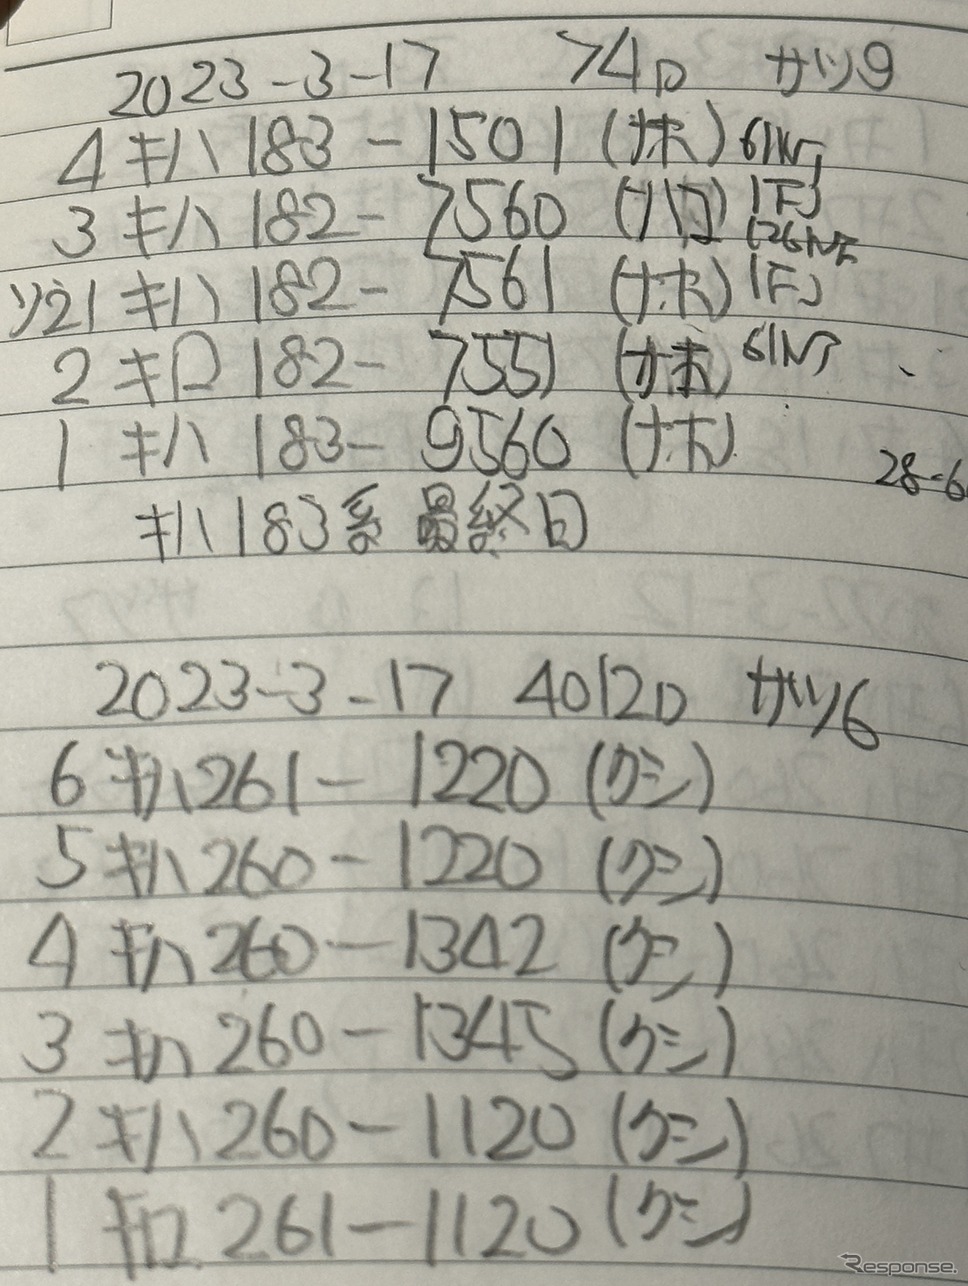 2023-3-17 74D サツ9
4 キハ 183-1501 (ナホ) 61NJ
3 キハ 182-7560 (ハコ) 1FJ
126NE
ソ21 キハ 182-7561 (ナホ) 1FJ
2 キロ 182-7551 (ナホ) 61NJ
1 キハ 183-9560 (ナホ)
28-6
キハ183系 最終日
2023-3-17 4012D サツ6
6 キハ261-1220 (クシ)
5 キハ260-1220 (クシ)
4 キハ260-1342 (クシ)
3 キハ260-1345 (クシ)
2 キハ260-1120 (クシ)
1 キロ261-1120 (クシ)
Response.